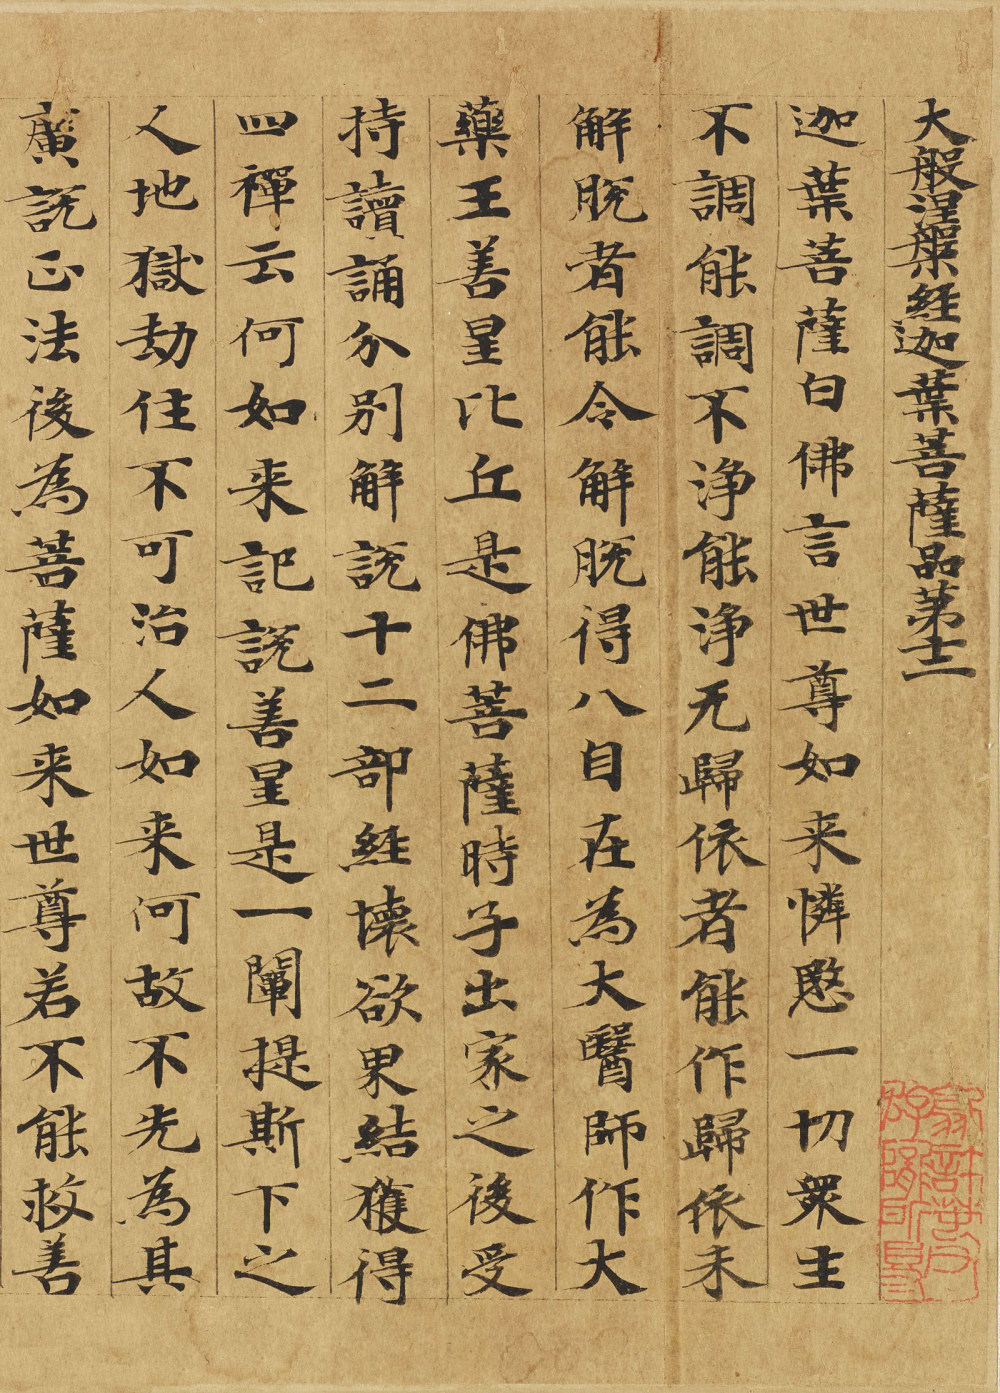 大般涅槃經迦葉菩薩品第十二
迦葉菩薩白佛言世尊如来憐愍一切衆生
不調能調不浄能浄无歸依者能作歸依未
解脱者能令解脱得八自在為大醫師作大
藥王善星比丘是佛菩薩時子出家之後受
持讀誦分別解説十二部經懐欲界結獲得
四禪云何如来記説善星是一闡提斯下之
人地獄劫住不可治人如来何故不先為其
廣説正法後為菩薩如来世尊若不能救善